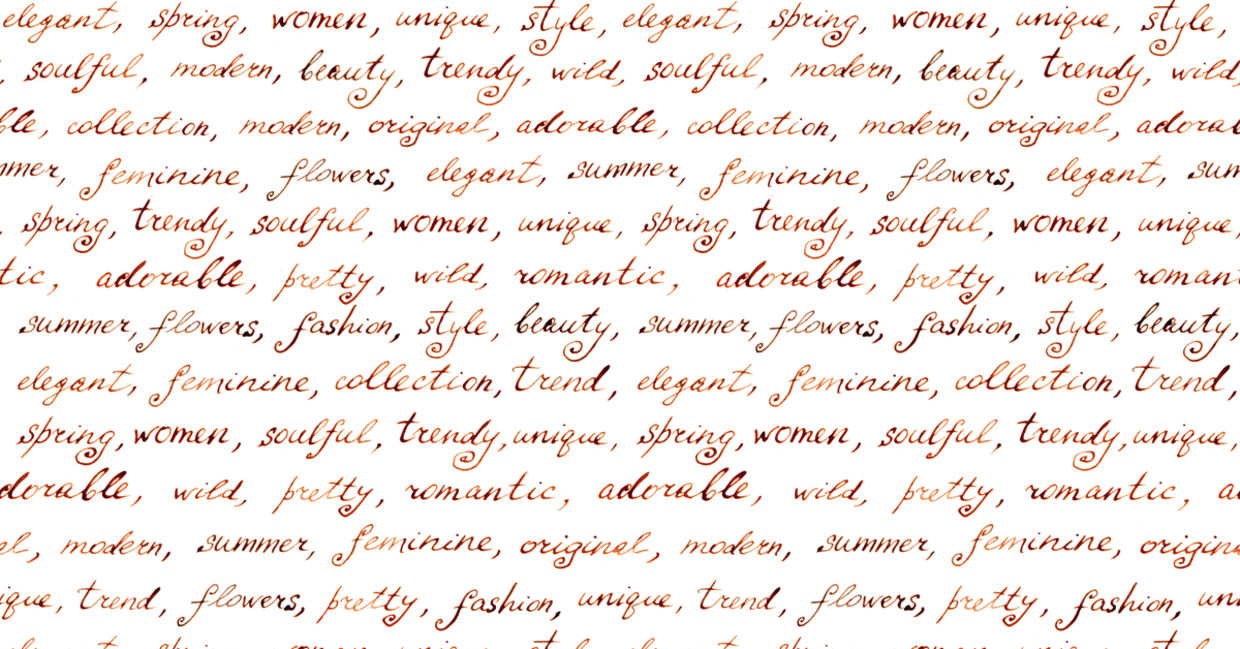 elegant, spring, women, unique, style, elegant, spring, women, unique, style,
, soulful, modern, beauty, trendy, wild, soulful, modern, beauty, trendy, wild,
ble, collection, modern, original, adorable, collection, modern, original, adorab
mmer, feminine, flowers, elegant, summer, feminine, flowers, elegant, sum
, spring, trendy, soulful, women, unique, spring, trendy, soulful, women, unique,
tic, adorable, pretty, wild, romantic, adorable, pretty, wild, romant
summer, flowers, fashion, style, beauty, summer, flowers, fashion, style, beauty,
elegant, feminine, collection, trend, elegant, feminine, collection, trend,
spring, women, soulful, trendy, unique, spring, women, soulful, trendy, unique,
dorable, wild, pretty, romantic, adorable, wild, pretty, romantic, a
al, modern, summer, feminine, original, modern, summer, feminine, origina
ique, trend, flowers, pretty, fashion, unique, trend, flowers, pretty, fashion, uni